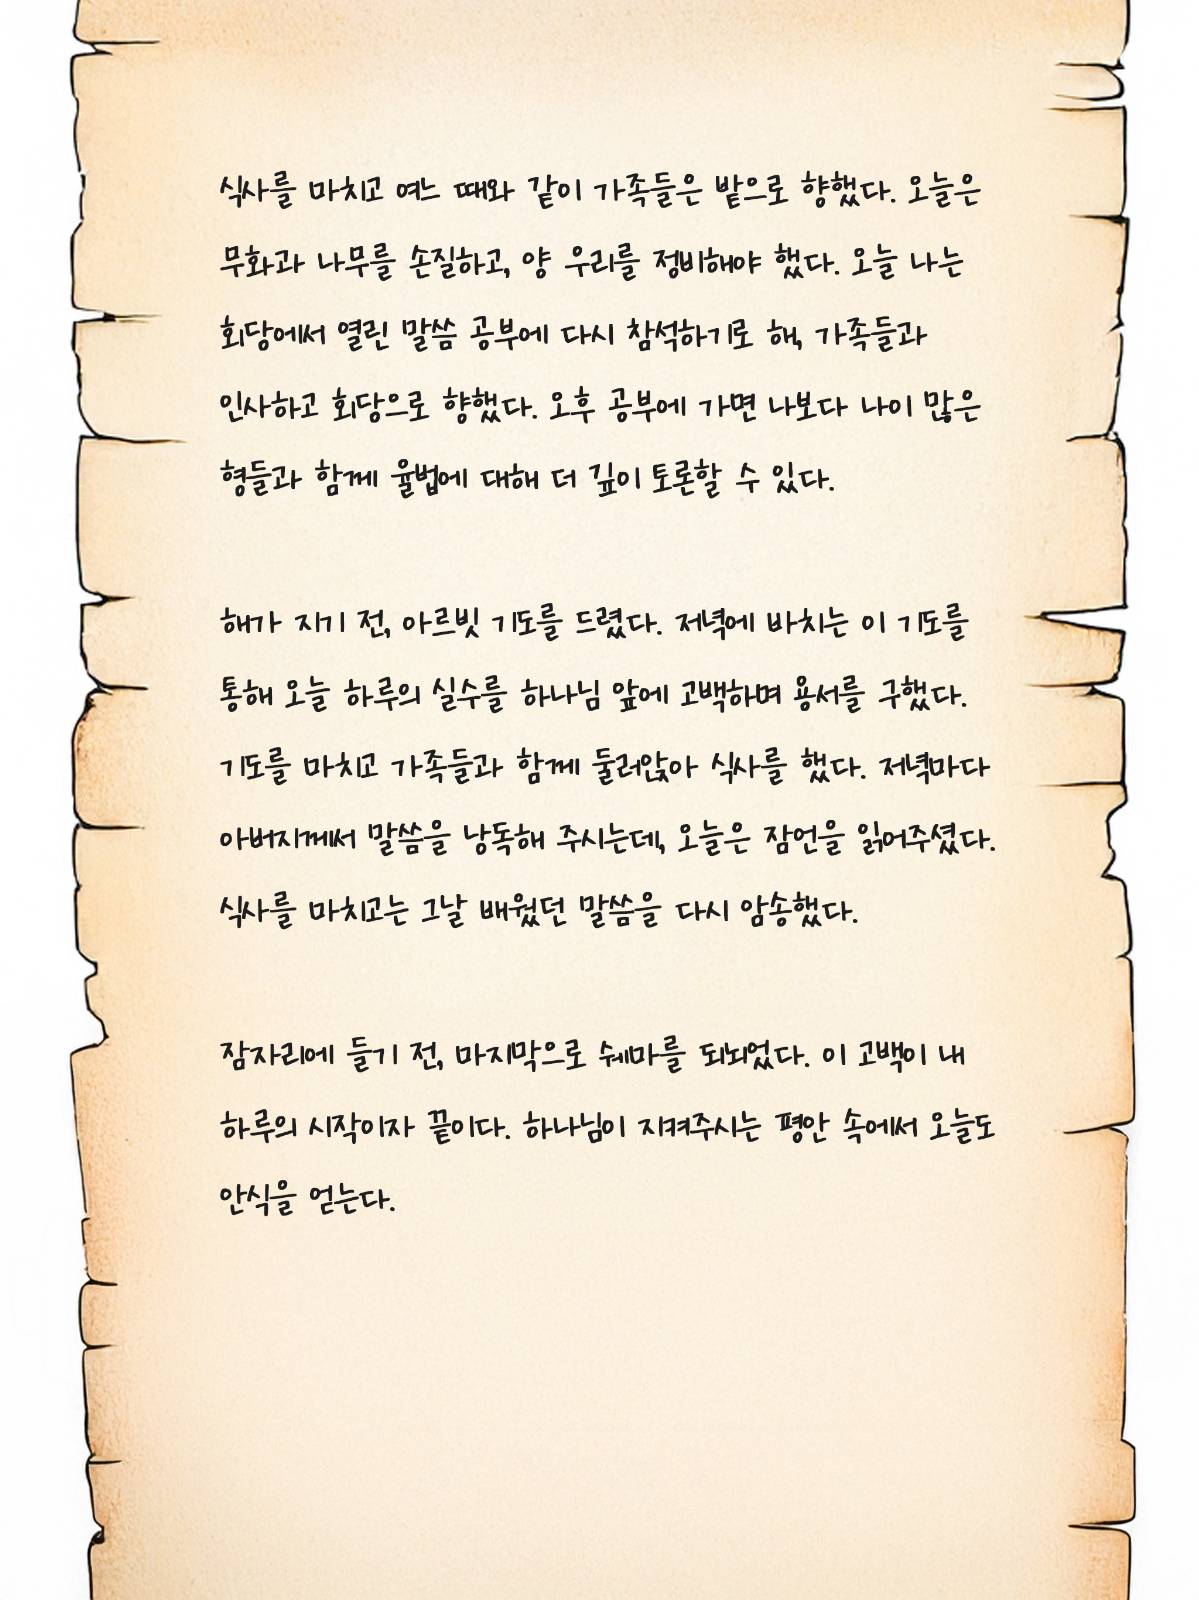 식사를 마치고 여느 때와 같이 가족들은 밭으로 향했다. 오늘은
무화과 나무를 손질하고, 양 우리를 정비해야 했다. 오늘 나는
회당에서 열린 말씀 공부에 다시 참석하기로 해, 가족들과
인사하고 회당으로 향했다. 오후 공부에 가면 나보다 나이 많은
형들과 함께 율법에 대해 더 깊이 토론할 수 있다.
해가 지기 전, 아르빗 기도를 드렸다. 저녁에 바치는 이 기도를
통해 오늘 하루의 실수를 하나님 앞에 고백하며 용서를 구했다.
기도를 마치고 가족들과 함께 둘러앉아 식사를 했다. 저녁마다
아버지께서 말씀을 낭독해 주시는데, 오늘은 잠언을 읽어주셨다.
식사를 마치고는 그날 배웠던 말씀을 다시 암송했다.
잠자리에 들기 전, 마지막으로 쉐마를 되뇌었다. 이 고백이 내
하루의 시작이자 끝이다. 하나님이 지켜주시는 평안 속에서 오늘도
안식을 얻는다.